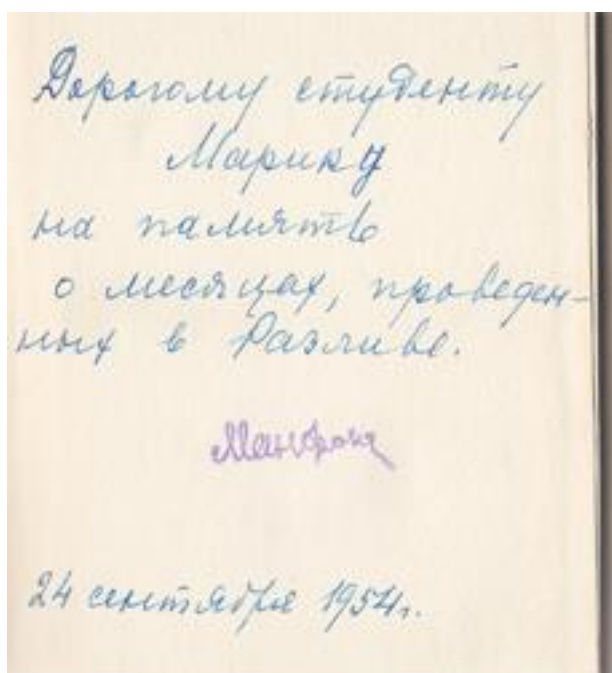 Дорогому студенту
Марику
на память
о месяцах, проведен-
ных в Разливе.
24 сентября 1954г.